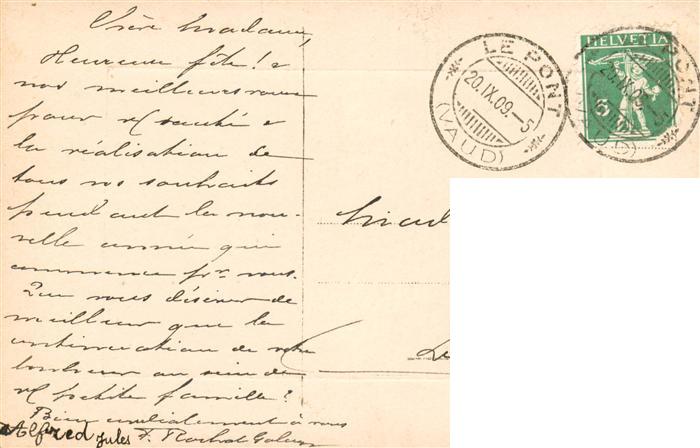 Chère Madame,
Heureuse fête! &
nos meilleurs vœux
pour vtre santé &
la réalisation de
tous vos souhaits
pendant la nou-
velle année qui
commence pr vous.
Que vous désirer de
meilleur que la
continuation de votre
bonheur au sein de
vtre petite famille?
Bien cordialement à vous
Alfred Jules F. Rochat
Mad
LE PONT
20.IX.09.-5
(VAUD)
HELVETIA
5
LE PONT
20.IX.09.-5
(VAUD)